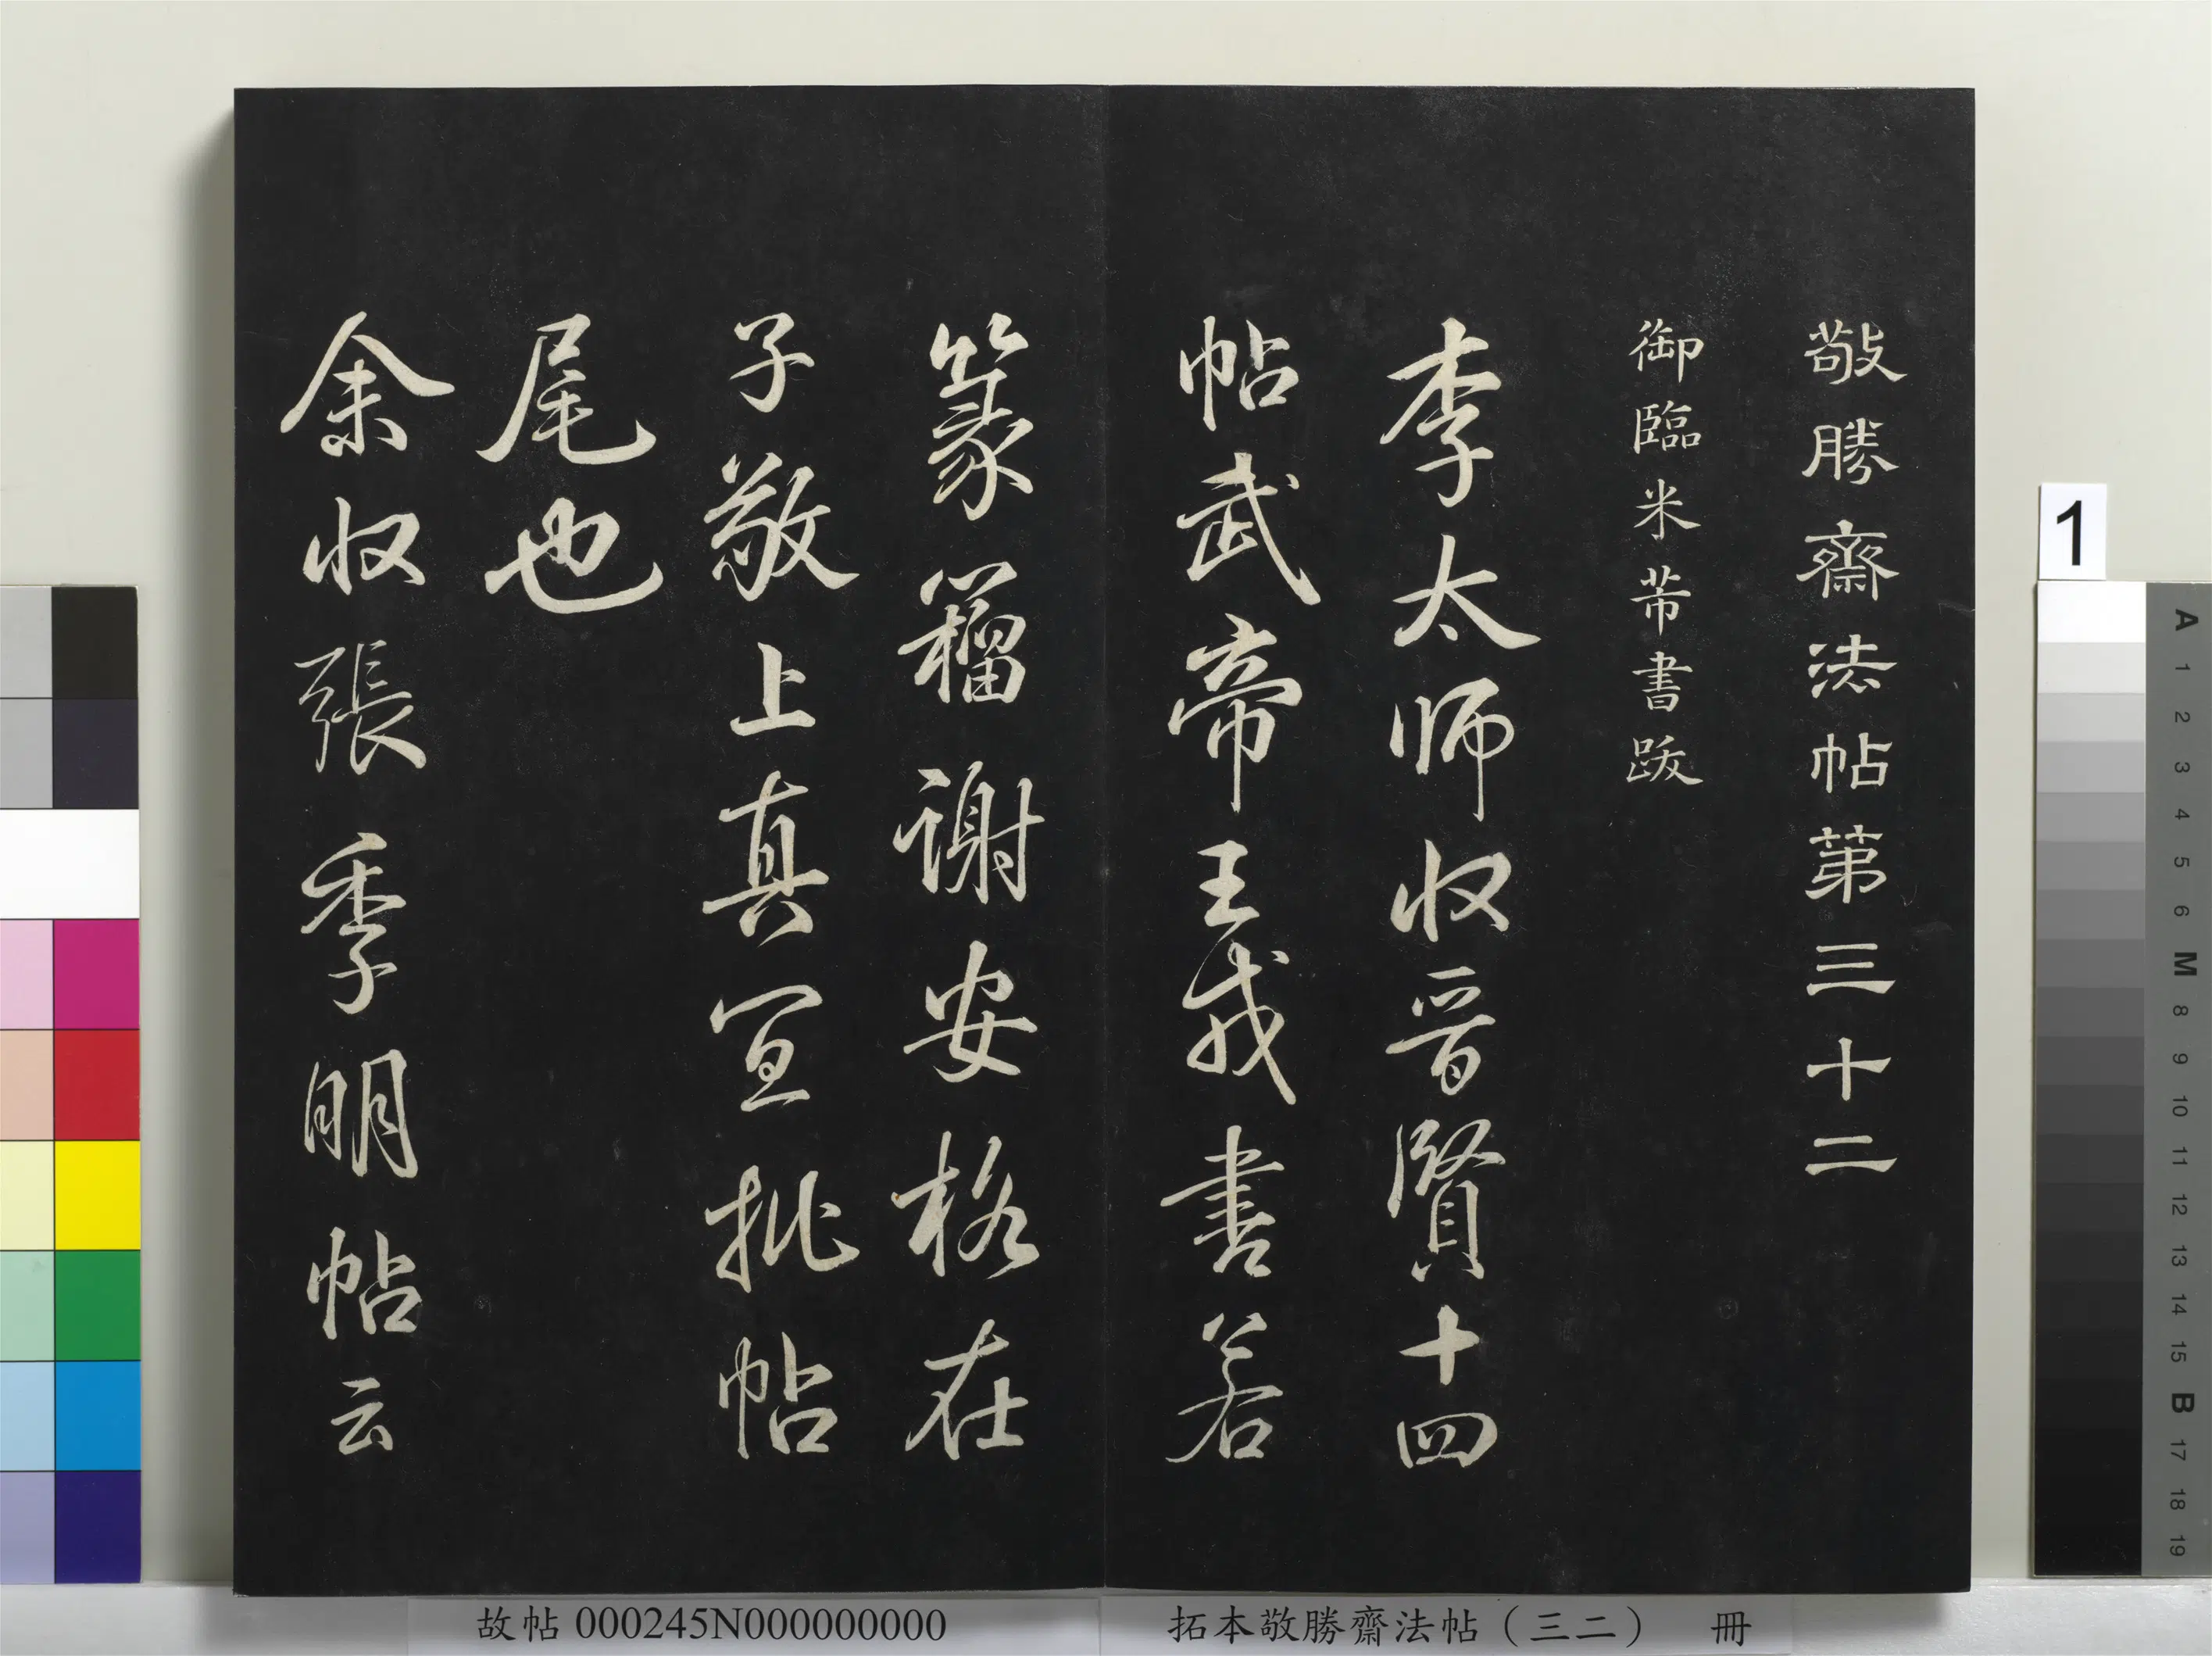 敬勝齋法帖第三十二
御臨米芾書跋
李太师收晋賢十四
帖武帝王戎書若
篆籀谢安格在
子敬上真宜批帖
尾也
余收張季明帖云
故帖 000245N000000000
拓本敬勝齋法帖（三二） 冊
1
A
1
2
3
4
5
6
M
8
9
10
11
12
13
14
15
B
17
18
19